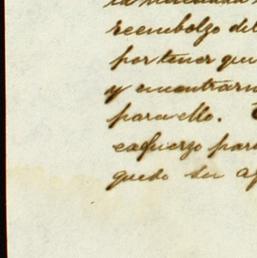 reembolzo del
por tener que
y encontrarm
para ello.
esfuerzo para
quedo su af